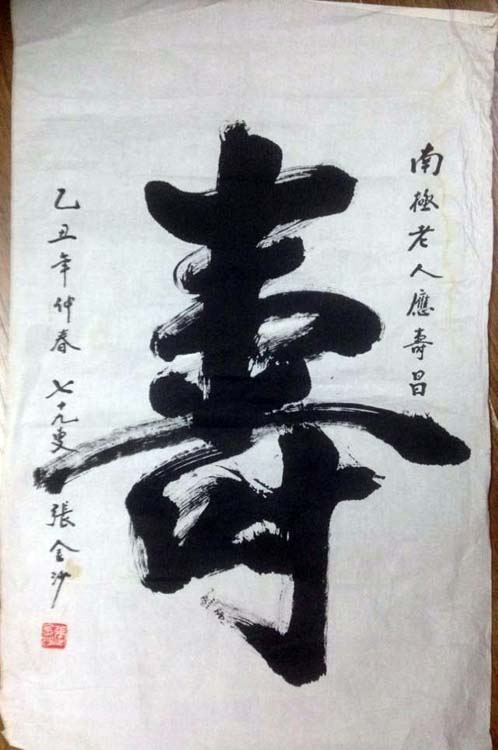 南極老人應壽昌
壽
乙丑年仲春 七十九叟 張金沙